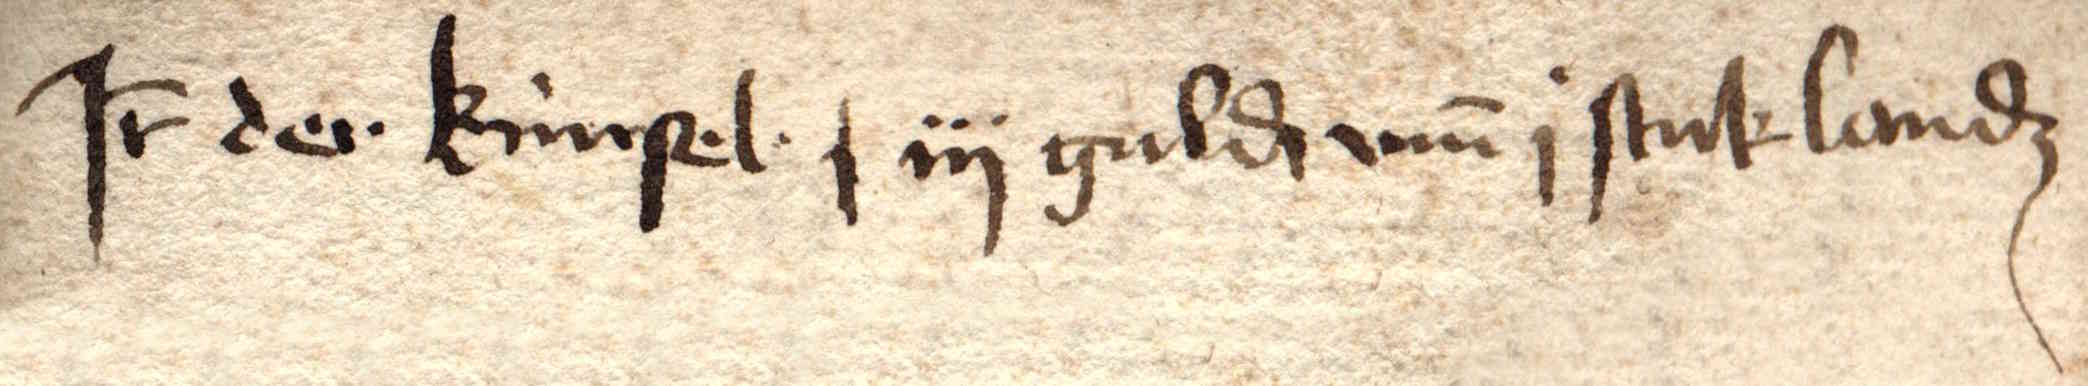 It der kimpel · j iij guld vm̄ j stuk landz